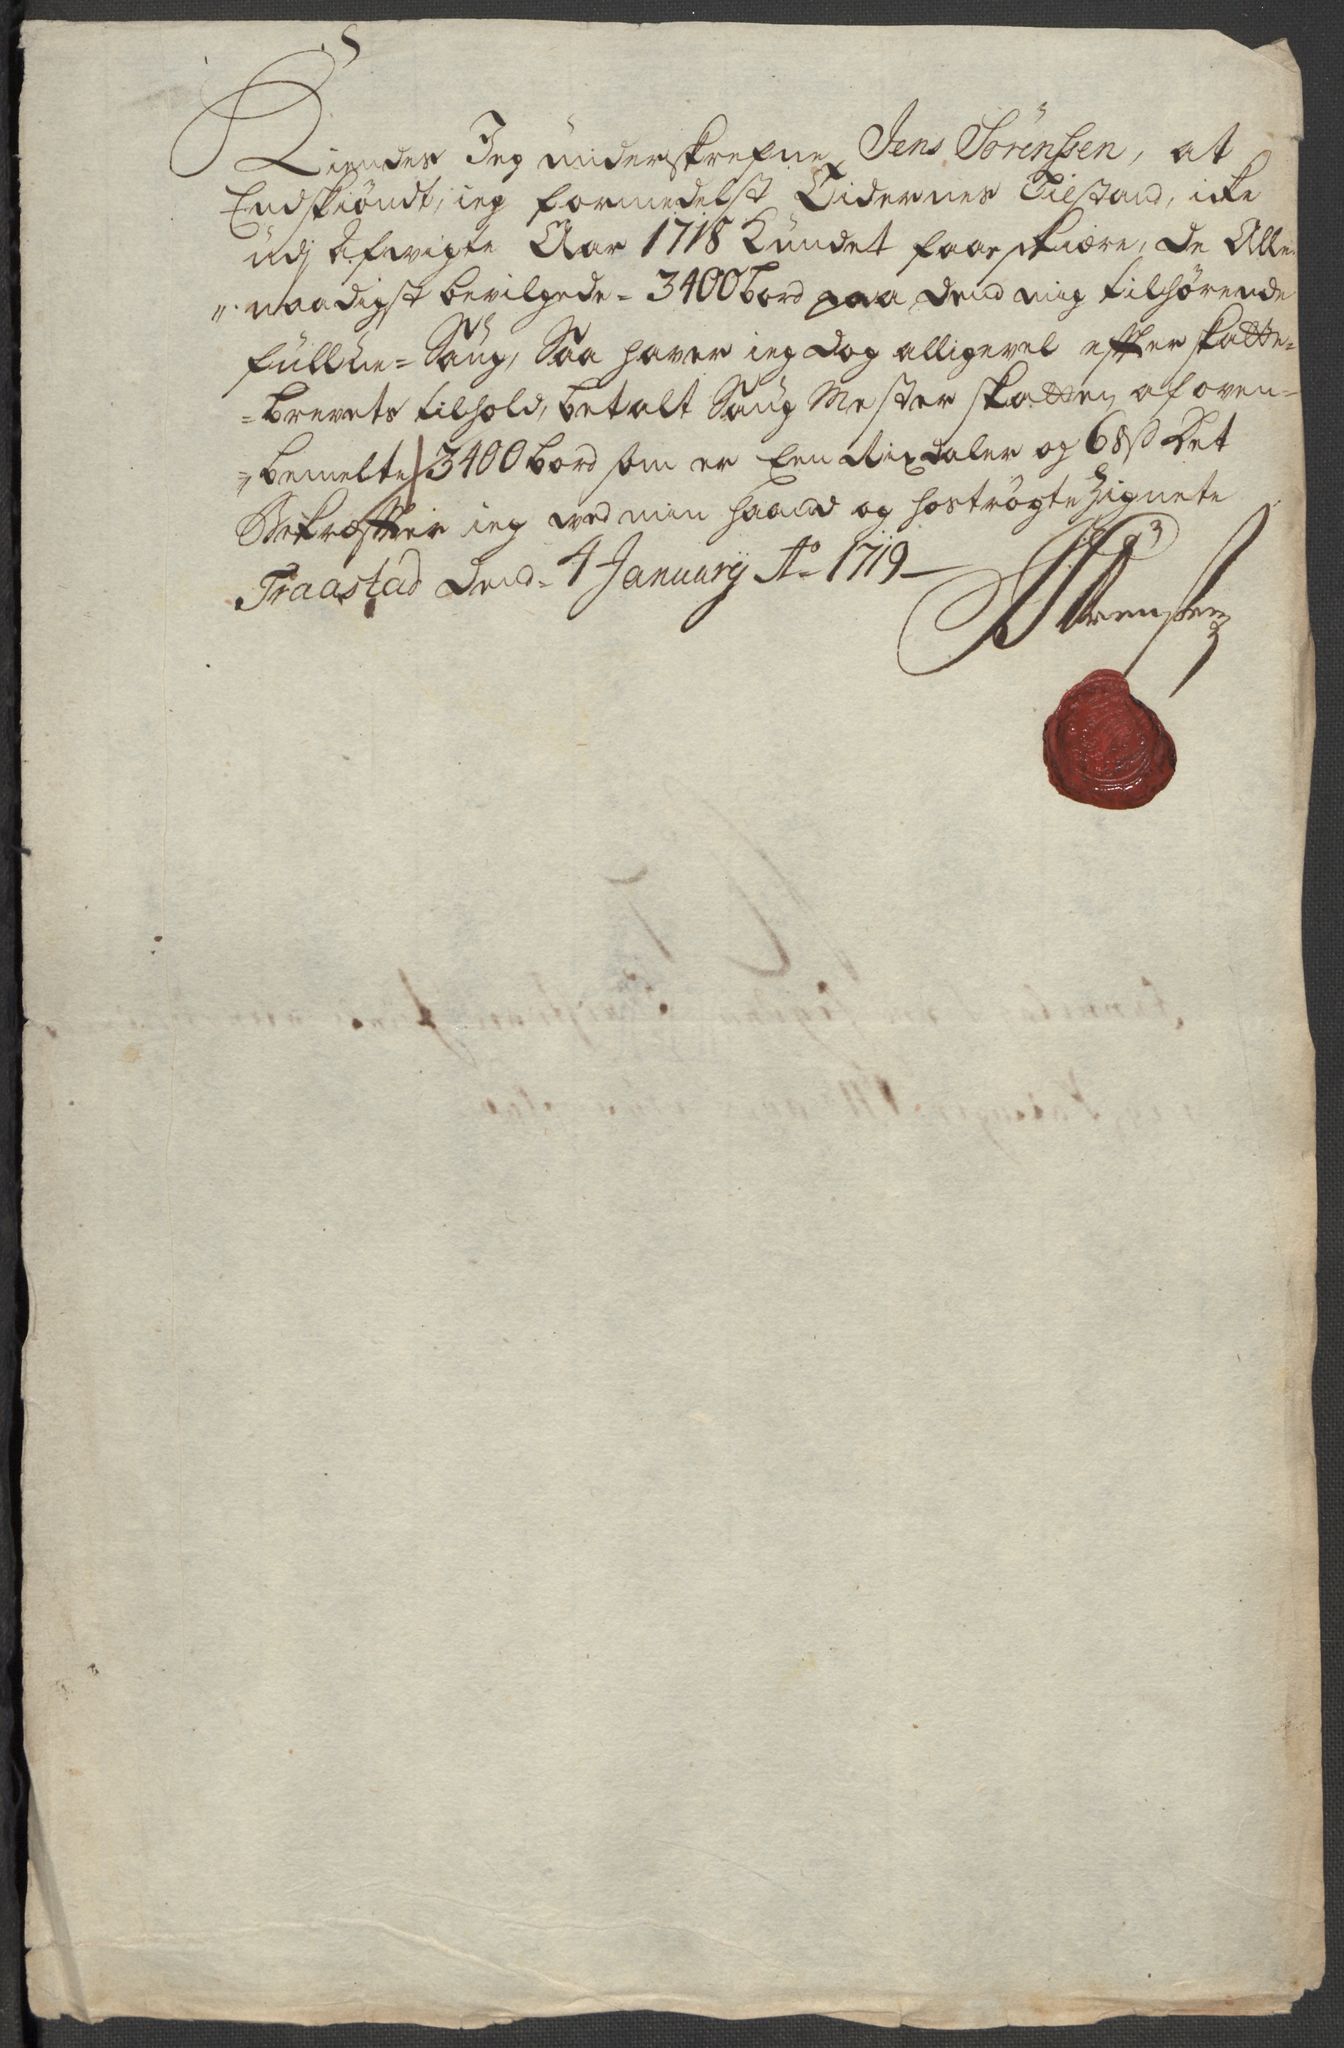 Kiendes Jeg underskrefne Jens Sörenssen, at
Endskiöndt, ieg formedelst Tidernes Tilstand, icke
udj Afvigte Aar 1718 kundet faae skiære, de Aller
naadigst bevilgede 3400 bord paa dend mig tilhörende
Saug, Saa haver ieg dog alligevel efter skatte=
=brevets tilhold, betalt Saug Mester skatten af oven=
bemelte 3400 bord som er Een Rixdaler og 68 ß Det
Bekræfter ieg ved min haand og hoströgte Zignete
Traastad Dend 4 January Ao 1719
JSörenssen